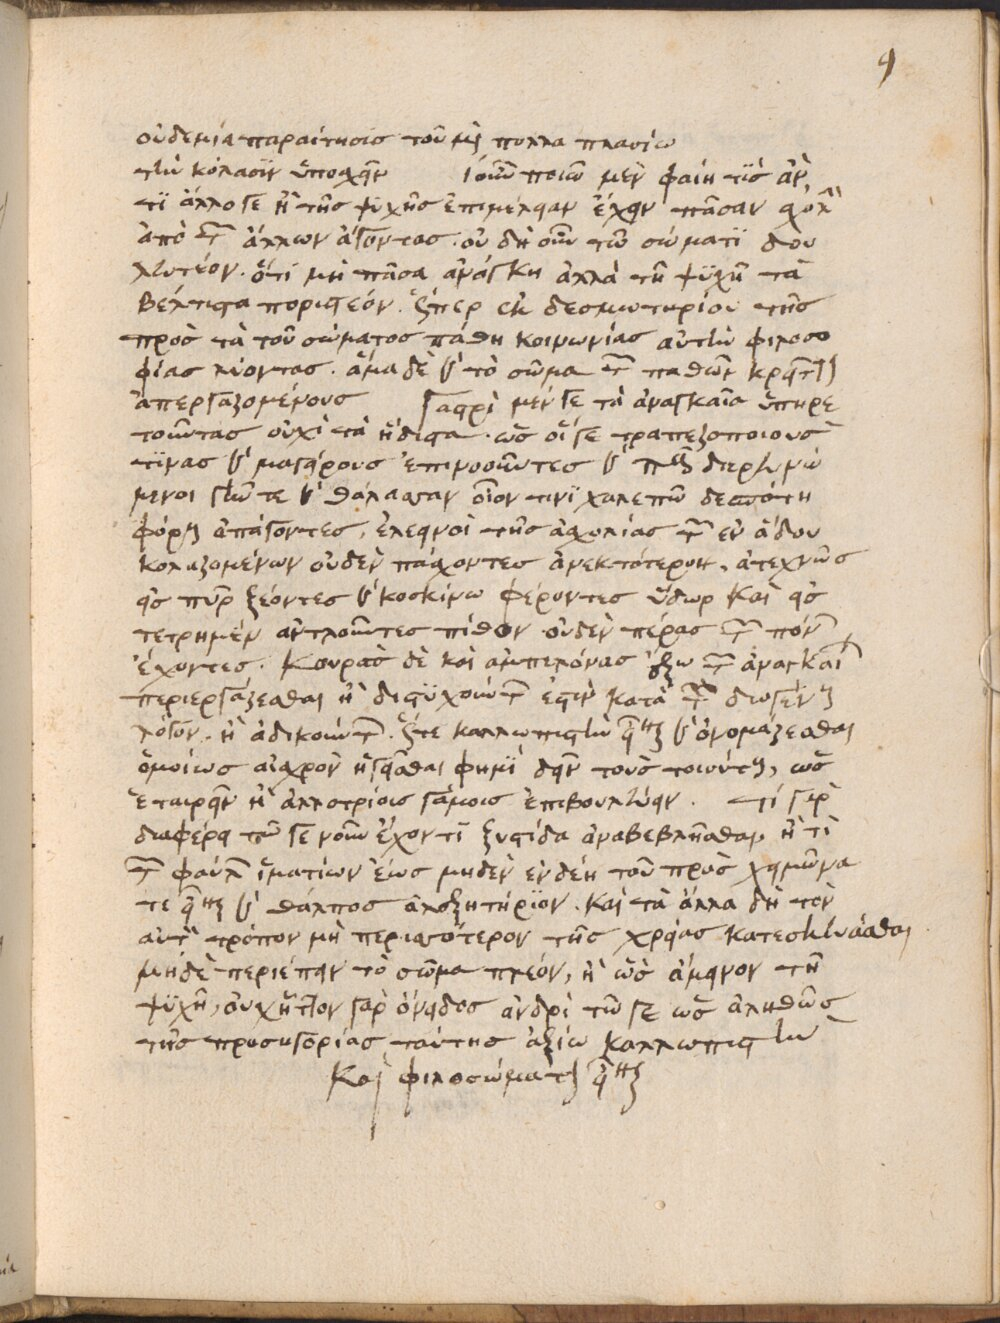 9
οὐδεμία παραίτησις τοῦ μὴ πολλαπλασίω
τὴν κόλασιν ὑποσχεῖν τί οὖν ποιῶμεν φαίη τίς ἂν,
τί ἄλλο γε ἢ τῆς ψυχῆς ἐπιμέλειαν ἔχειν πᾶσαν σχολὴν
ἀπὸ τῶν ἄλλων ἄγοντας. οὐ δὴ οὖν τῶ σώματι δου
λευτέον. ὅτι μὴ πᾶσα ἀνάγκη ἀλλὰ τῆ ψυχῆ τὰ
βέλτιστα ποριστέον. ὥσπερ ἐκ δεσμωτηρίου τῆς
πρὸς τὰ τοῦ σώματος πάθη κοινωνίας αὐτὴν φιλοσο
φίας λύοντας. ἅμα δὲ καὶ τὸ σῶμα τῶν παθῶν κρεῖττον
ἀπεργαζομένους γαστρὶ μέν γε τὰ ἀναγκαῖα ὑπηρε
τοῦντας οὐχὶ τὰ ἥδιστα. ὡς οἵ γε τραπεζοποιούς
τινας καὶ μαγείρους ἐπινοοῦντες καὶ πᾶσαν διερευνώ
μενοι γῆν τε καὶ θάλασσαν οἷόν τινι χαλεπῶ δεσπότη
φόρους ἀπάγοντες, ἐλεεινοὶ τῆς ἀσχολίας τῶν ἐν ἅδου
κολαζομένων οὐδὲν πάσχοντες ἀνεκτότερον, ἀτεχνῶς
εἰς πῦρ ξέοντες καὶ κοσκίνω φέροντες ὕδωρ καὶ εἰς
τετρημένον ἀντλοῦντες πίθον οὐδὲν πέρας τῶν πόνων
ἔχοντες. Κουρὰς δὲ καὶ ἀμπεχόνας ἔξω τῶν ἀναγκαίων
περιεργάζεσθαι ἢ δυστυχούντων ἐστὶν κατὰ τὸν διογένους
λόγον. ἢ ἀδικούντων. ὥστε καλλωπιστὴν εἶναι καὶ ὀνομάζεσθαι
ὁμοίως αἰσχρὸν ἡγεῖσθαι φημὶ δεῖν τοὺς τοιούτους, ὡς
ἑταιρεῖν ἢ ἀλλοτρίοις γάμοις ἐπιβουλεύειν. τί γὰρ
διαφέρει τῶ γε νοῦν ἔχοντι ξυστίδα ἀναβεβλῆσθαι, ἤ τι
τῶν φαύλων ἱματίων ἕως μηδὲν ἐνδέη τοῦ πρὸς χειμῶνα
τε εἶναι καὶ θάλπος ἀλεξητήριον. Καὶ τὰ ἄλλα δὴ τὸν
αὐτὸν τρόπον μὴ περισσότερον τῆς χρείας κατεσκευάσθαι
μηδὲ περιέπειν τὸ σῶμα πλέον, ἢ ὡς ἄμεινον τῆ
ψυχῆ, οὐχ ἧττον γὰρ ὄνειδος ἀνδρὶ τῶ γε ὡς ἀληθῶς
τῆς προσηγορίας ταύτης ἀξίω καλλωπιστὴν
Καὶ φιλοσώματον εἶναι